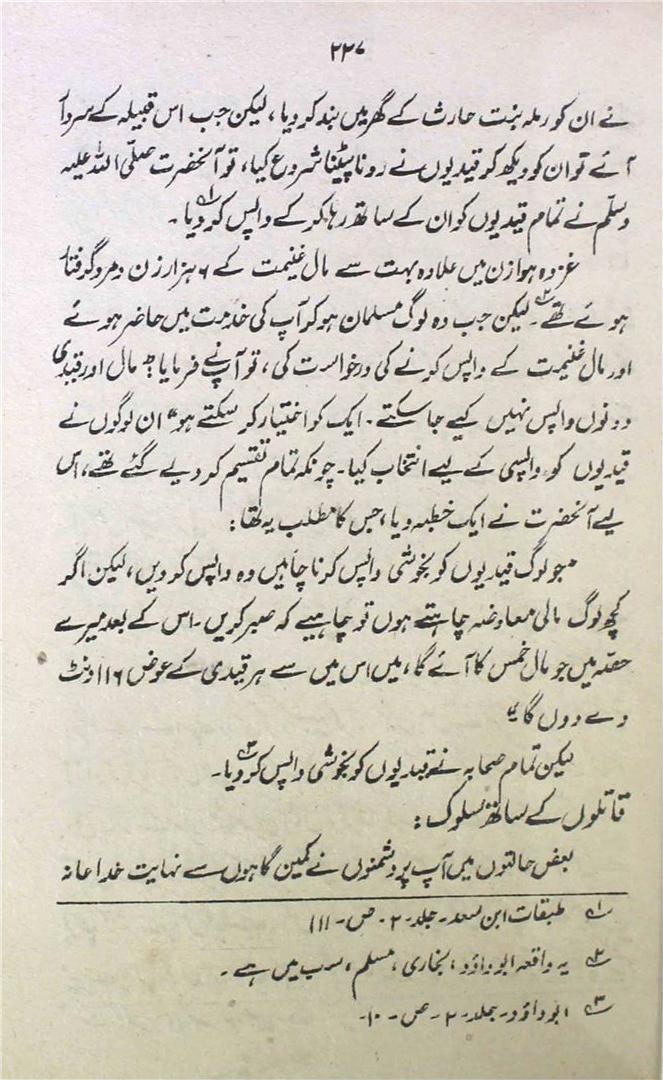 ۲۲۷
نے ان کو رملہ بنت حارث کے گھر میں بند کر دیا، لیکن جب اس قبیلہ کے سردا
آئے تو ان کو دیکھ کر قیدیوں نے رونا پیٹنا شروع کیا، تو آنحضرت صلّی اللہ علیہ
وسلّم نے تمام قیدیوں کو ان کے ساتھ رہا کر کے واپس کر دیا۔؂۱
غزوہ ہوازن میں علاوہ بہت سے مال غنیمت کے ۶ ہزار زن و مرد گرفتار
ہوئے تھے؂۲۔ لیکن جب وہ لوگ مسلمان ہو کر آپ کی خدمت میں حاضر ہوئے
اور مال غنیمت کے واپس کرنے کی درخواست کی، تو آپ نے فرمایا "مال اور قیدی
دونوں واپس نہیں کیے جا سکتے۔ ایک کو اختیار کر سکتے ہو" ان لوگوں نے
قیدیوں کو واپسی کے لیے انتخاب کیا۔ چونکہ تمام تقسیم کر دیے گئے تھے، اس
لیے آنحضرت نے ایک خطبہ دیا، جس کا مطلب یہ تھا:
"جو لوگ قیدیوں کو بخوشی واپس کرنا چاہیں وہ واپس کر دیں، لیکن اگر
کچھ لوگ مالی معاوضہ چاہتے ہوں تو چاہیے کہ صبر کریں۔ اس کے بعد میرے
حصّہ میں جو مال خمس کا آئے گا، میں اس میں سے ہر قیدی کے عوض ۱۶ اونٹ
دے دوں گا"
لیکن تمام صحابہ نے قیدیوں کو بخوشی واپس کر دیا۔؂۳
قاتلوں کے ساتھ سلوک:
بعض حالتوں میں آپ پر دشمنوں نے کمین گاہوں سے نہایت غداعانہ
؂۱ طبقات ابن سعد۔ جلد۔ ۲۔ ص۔ ۱۱۱
؂۲ یہ واقعہ ابو داؤد، بخاری، مسلم، سب میں ہے۔
؂۳ ابو داؤد۔ جلد۔ ۲۔ ص۔ ۱۰۔